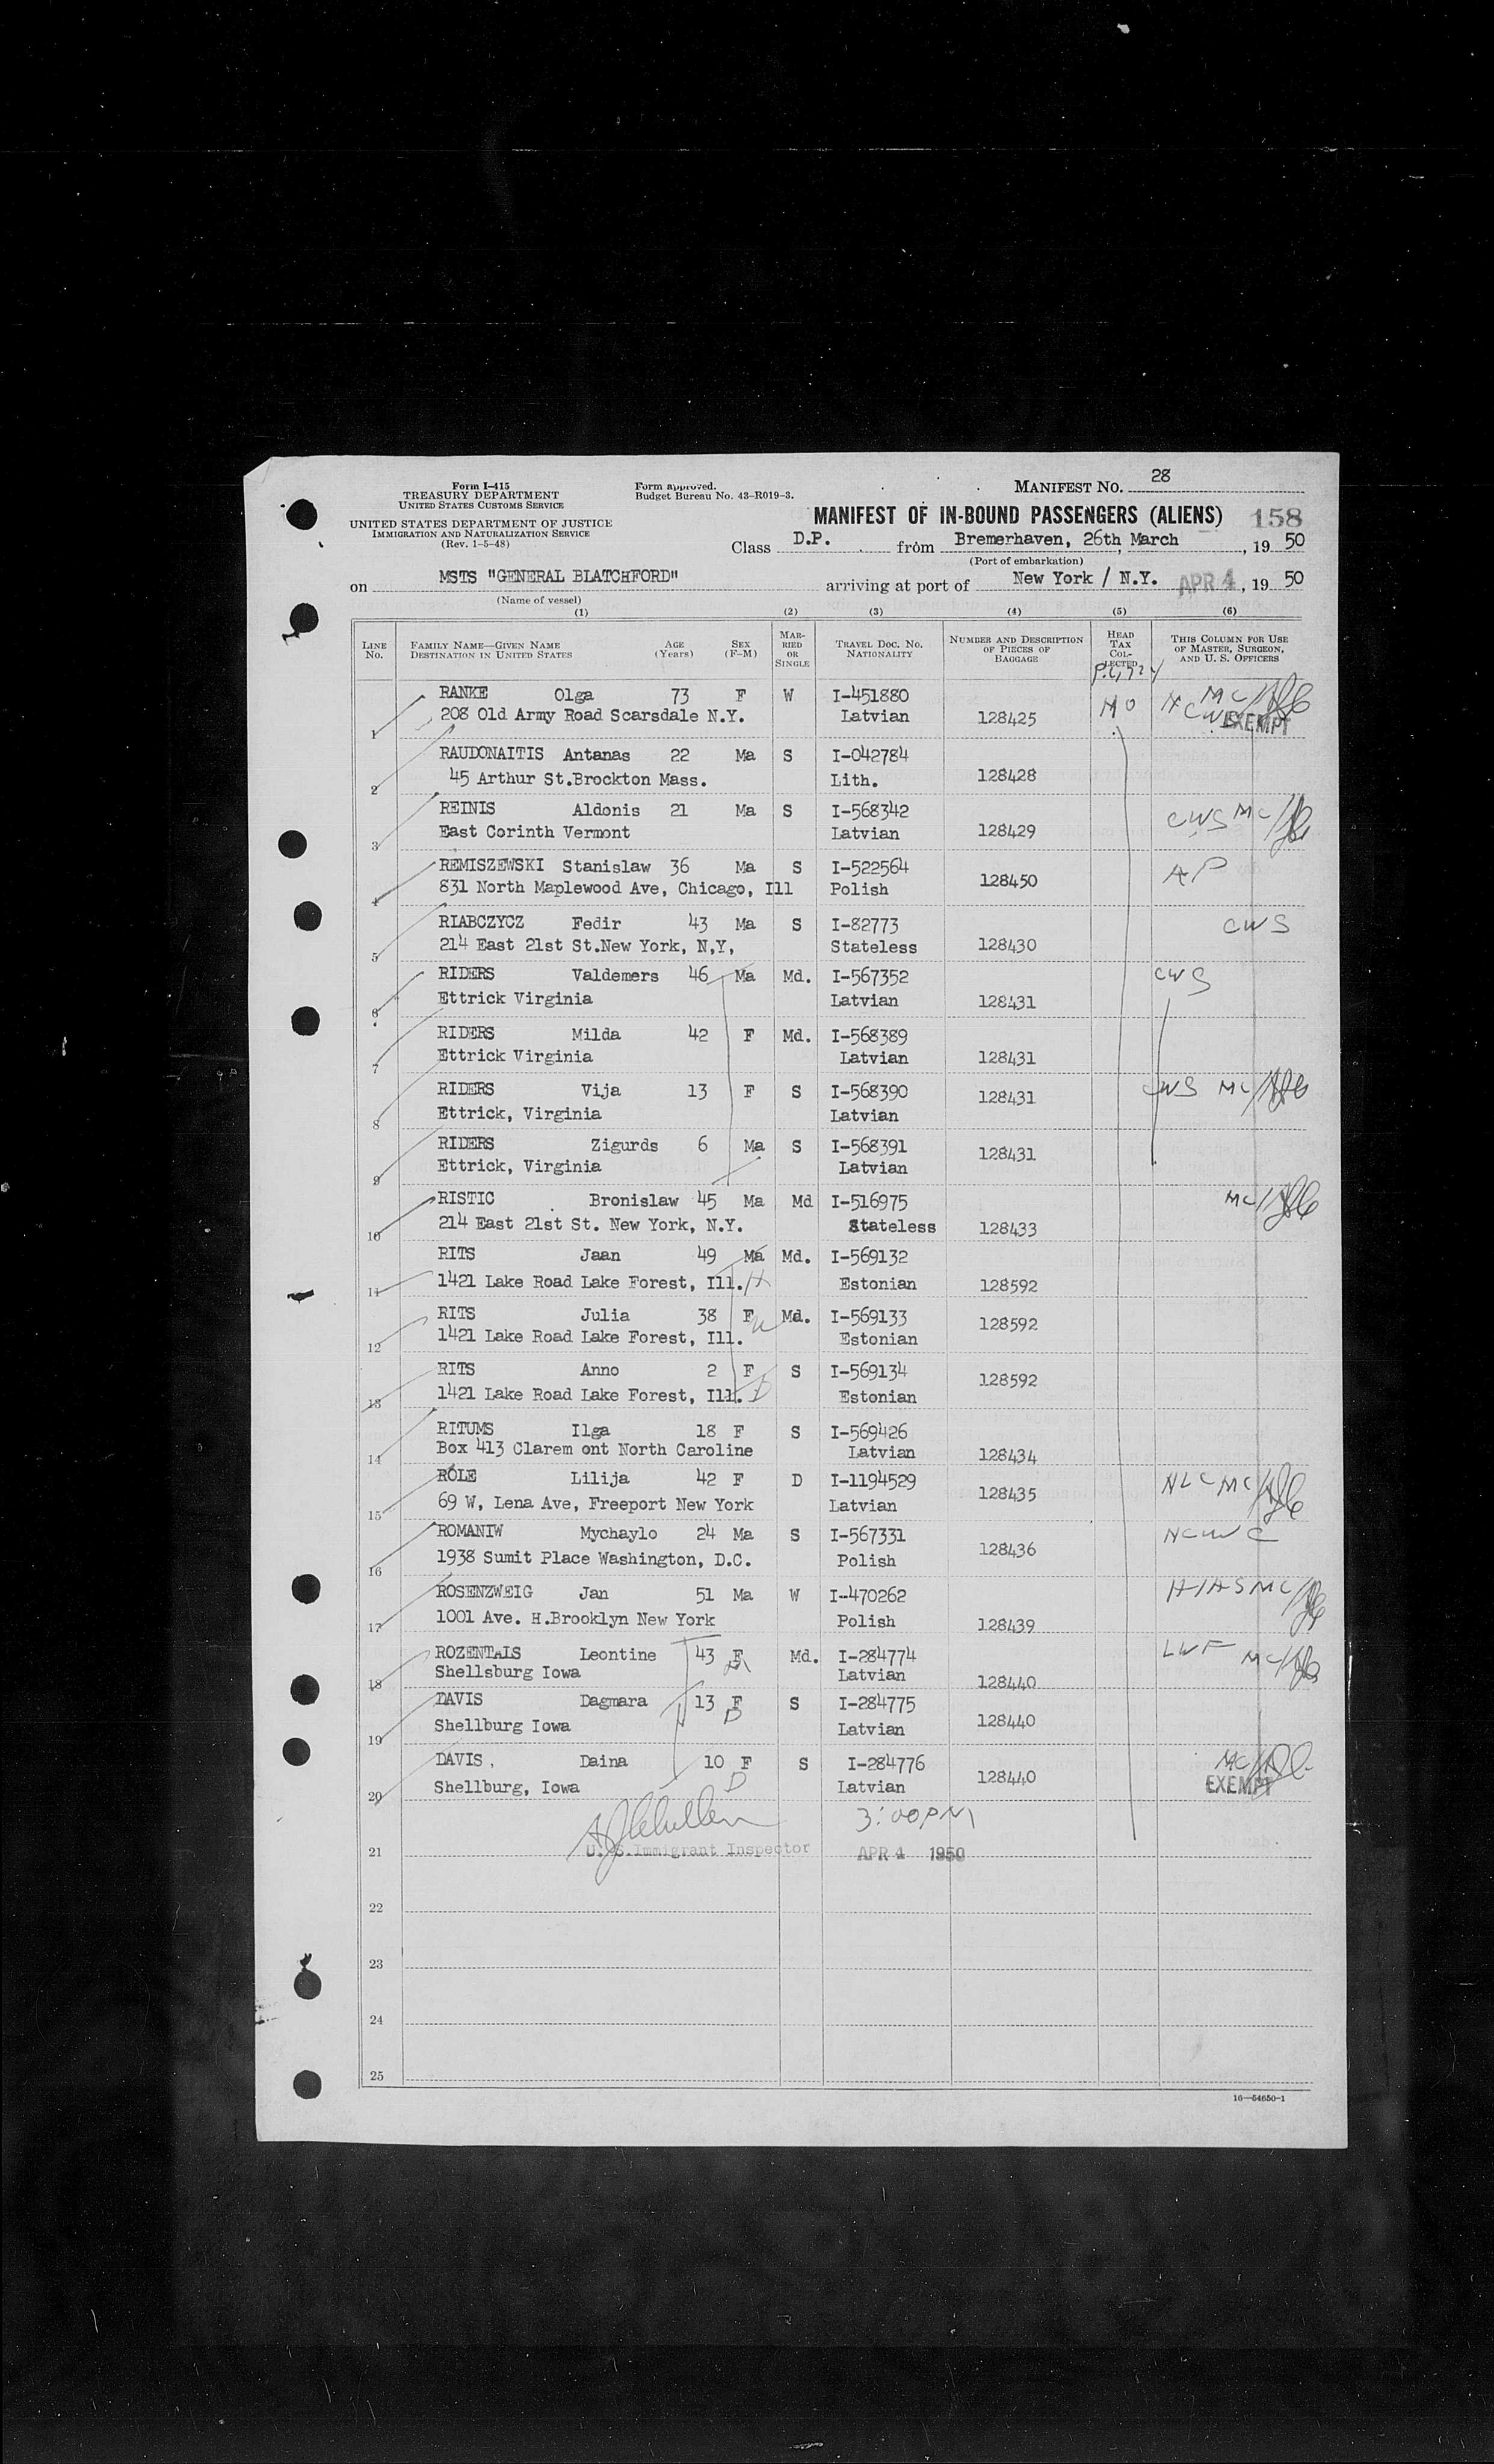 Form I-415
TREASURY DEPARTMENT
UNITED STATES CUSTOMS SERVICE
UNITED STATES DEPARTMENT OF JUSTICE
IMMIGRATION AND NATURALIZATION SERVICE
(Rev. 1-5-48)
Form approved.
Budget Bureau No. 43-R019-3.
MANIFEST NO. 28
MANIFEST OF IN-BOUND PASSENGERS (ALIENS) 158
Class D.P. from Bremerhaven, 26th March, 19 50
(Port of embarkation)
on MSTS "GENERAL BLATCHFORD" arriving at port of New York / N.Y. APR 4, 19 50
(Name of vessel)
(1) (2) (3) (4) (5) (6)
LINE No. FAMILY NAME—GIVEN NAME DESTINATION IN UNITED STATES AGE (Years) SEX (F-M) MARRIED OR SINGLE TRAVEL DOC. NO. NATIONALITY NUMBER AND DESCRIPTION OF PIECES OF BAGGAGE HEAD TAX COLLECTED THIS COLUMN FOR USE OF MASTER, SURGEON, AND U. S. OFFICERS
RANKE Olga 73 F W I-451880 MC
1 208 Old Army Road Scarsdale N.Y. Latvian 128425 EXEMPT
RAUDONAITIS Antanas 22 Ma S I-042784
2 45 Arthur St.Brockton Mass. Lith. 128428
REINIS Aldonis 21 Ma S I-568342 CWS MC
3 East Corinth Vermont Latvian 128429
REMISZEWSKI Stanislaw 36 Ma S I-522564 AP
4 831 North Maplewood Ave, Chicago, Ill Polish 128450
RIABCZYCZ Fedir 43 Ma S I-82773 CWS
5 214 East 21st St.New York, N,Y, Stateless 128430
RIDERS Valdemers 46 Ma Md. I-567352 CWS
6 Ettrick Virginia Latvian 128431
RIDERS Milda 42 F Md. I-568389
7 Ettrick Virginia Latvian 128431
RIDERS Vija 13 F S I-568390 128431 CWS MC
8 Ettrick, Virginia Latvian
RIDERS Zigurds 6 Ma S I-568391 128431
9 Ettrick, Virginia Latvian
RISTIC Bronislaw 45 Ma Md I-516975 MC
10 214 East 21st St. New York, N.Y. Stateless 128433
RITS Jaan 49 Ma Md. I-569132
11 1421 Lake Road Lake Forest, Ill. H Estonian 128592
RITS Julia 38 F W Md. I-569133 128592
12 1421 Lake Road Lake Forest, Ill. Estonian
RITS Anno 2 F S I-569134 128592
13 1421 Lake Road Lake Forest, Ill. D Estonian
RITUMS Ilga 18 F S I-569426
14 Box 413 Clarem ont North Caroline Latvian 128434
ROLE Lilija 42 F D I-1194529 128435 NLC MC
15 69 W, Lena Ave, Freeport New York Latvian
ROMANIW Mychaylo 24 Ma S I-567331 128436 NCWC
16 1938 Sumit Place Washington, D.C. Polish
ROSENZWEIG Jan 51 Ma W I-470262 HIAS MC
17 1001 Ave. H.Brooklyn New York Polish 128439
ROZENTALS Leontine 43 F M Md. I-284774 LWF MC
18 Shellsburg Iowa Latvian 128440
DAVIS Dagmara 13 F D S I-284775 128440
19 Shellburg Iowa Latvian
DAVIS, Daina 10 F D S I-284776 128440 MC
20 Shellburg, Iowa Latvian EXEMPT
3:00 PM
21 U. S.Immigrant Inspector APR 4 1950
22
23
24
25
16—54650-1